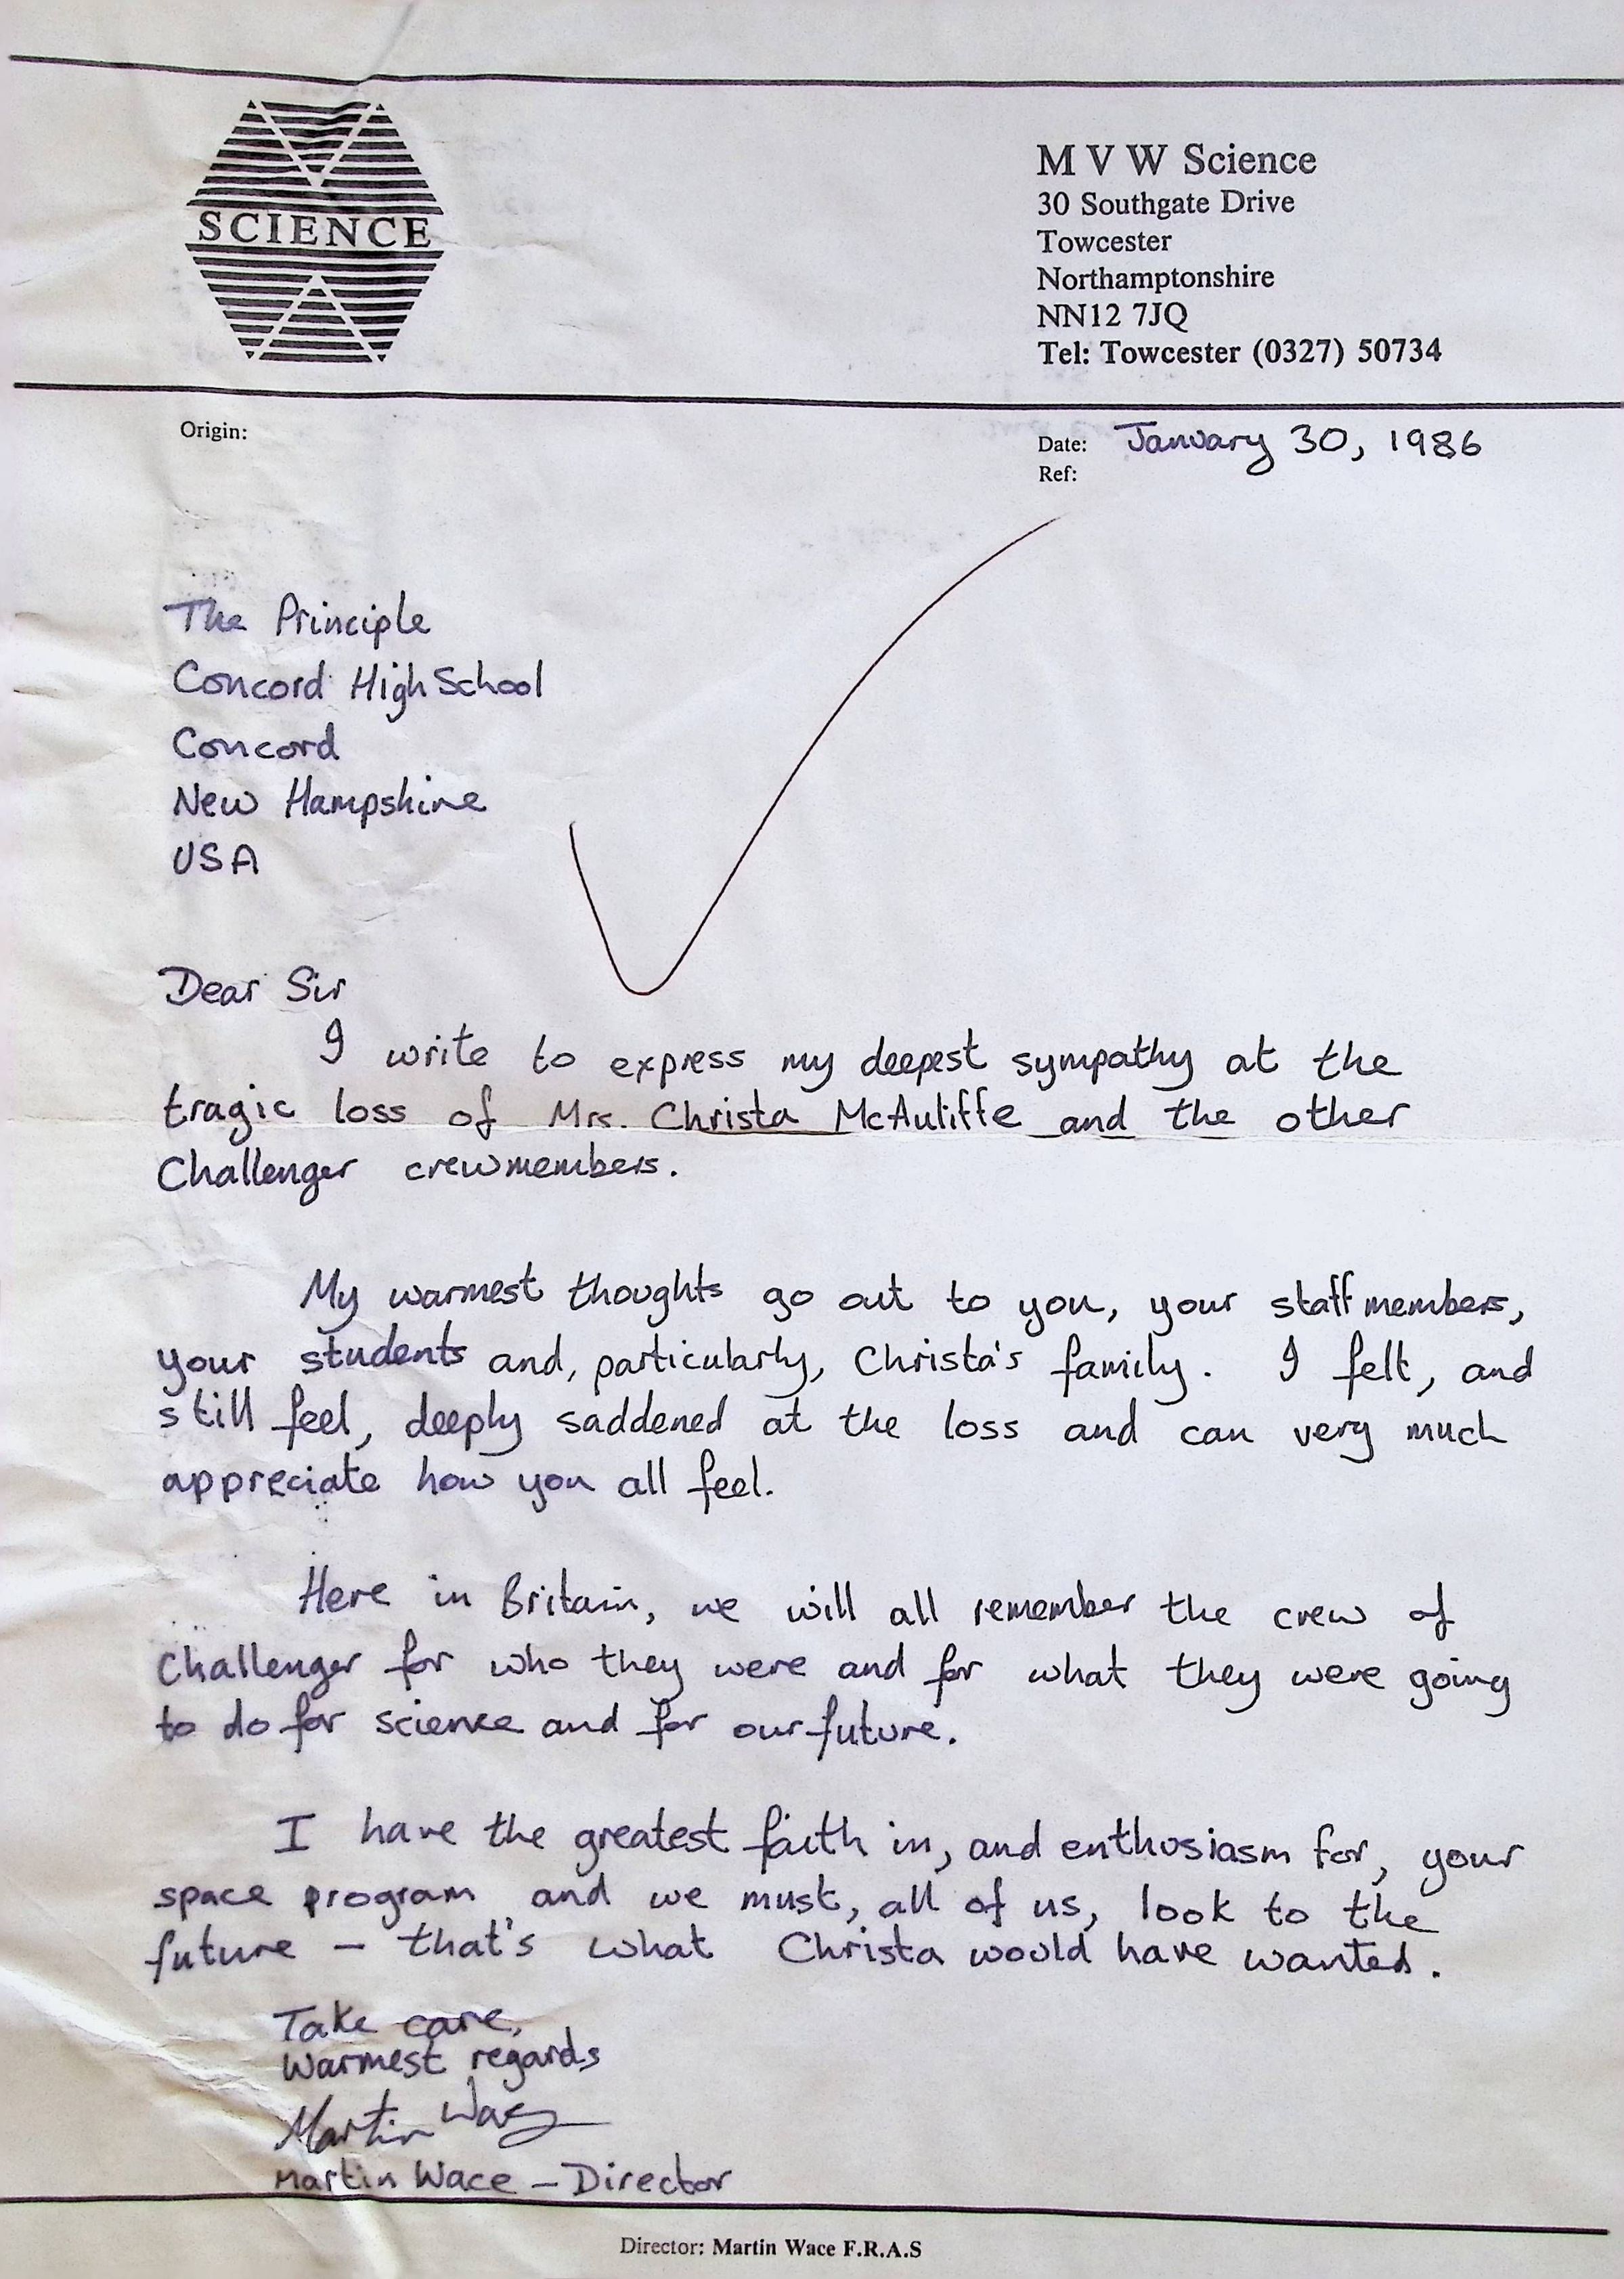 SCIENCE
M V W Science
30 Southgate Drive
Towcester
Northamptonshire
NN12 7JQ
Tel: Towcester (0327) 50734
Origin:
Date: January 30, 1986
Ref:
The Principle
Concord High School
Concord
New Hampshire
USA
Dear Sir
I write to express my deepest sympathy at the
tragic loss of Mrs. Christa McAuliffe and the other
Challenger crewmembers.
My warmest thoughts go out to you, your staff members,
your students and, particularly, Christa's family. I felt, and
still feel, deeply saddened at the loss and can very much
appreciate how you all feel.
Here in Britain, we will all remember the crew of
Challenger for who they were and for what they were going
to do for science and for our future.
I have the greatest faith in, and enthusiasm for, your
space program and we must, all of us, look to the
future – that's what Christa would have wanted.
Take care,
Warmest regards
Martin Wace
Martin Wace – Director
Director: Martin Wace F.R.A.S